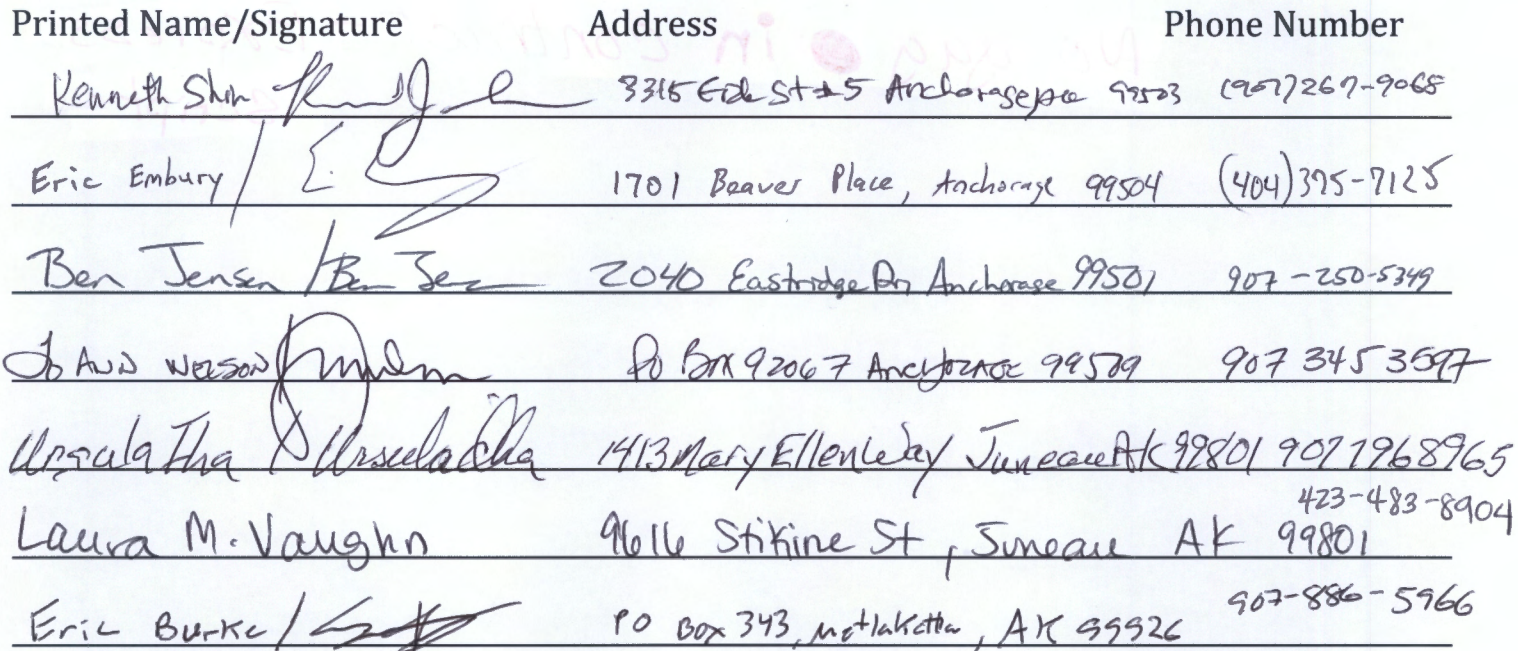 Printed Name/Signature Address Phone Number
Kenneth Shin 3315 Eide St #5 Anchorage 99503 (907)267-9068
Eric Embury / E. 1701 Beaver Place, Anchorage 99504 (404)375-7125
Ben Jensen / Ben Jen 2040 Eastridge Dr, Anchorage 99501 907-250-5349
Jo Ann Nelson PO Box 92067 Anchorage 99509 907 345 3597
Ursula Iha Ursula Iha 1413 Mary Ellen Way Juneau AK 99801 907 796 8965
423-483-8904
Laura M. Vaughn 9616 Stikine St, Juneau AK 99801
907-886-5966
Eric Burke / PO Box 343, Metlakatla, AK 99926